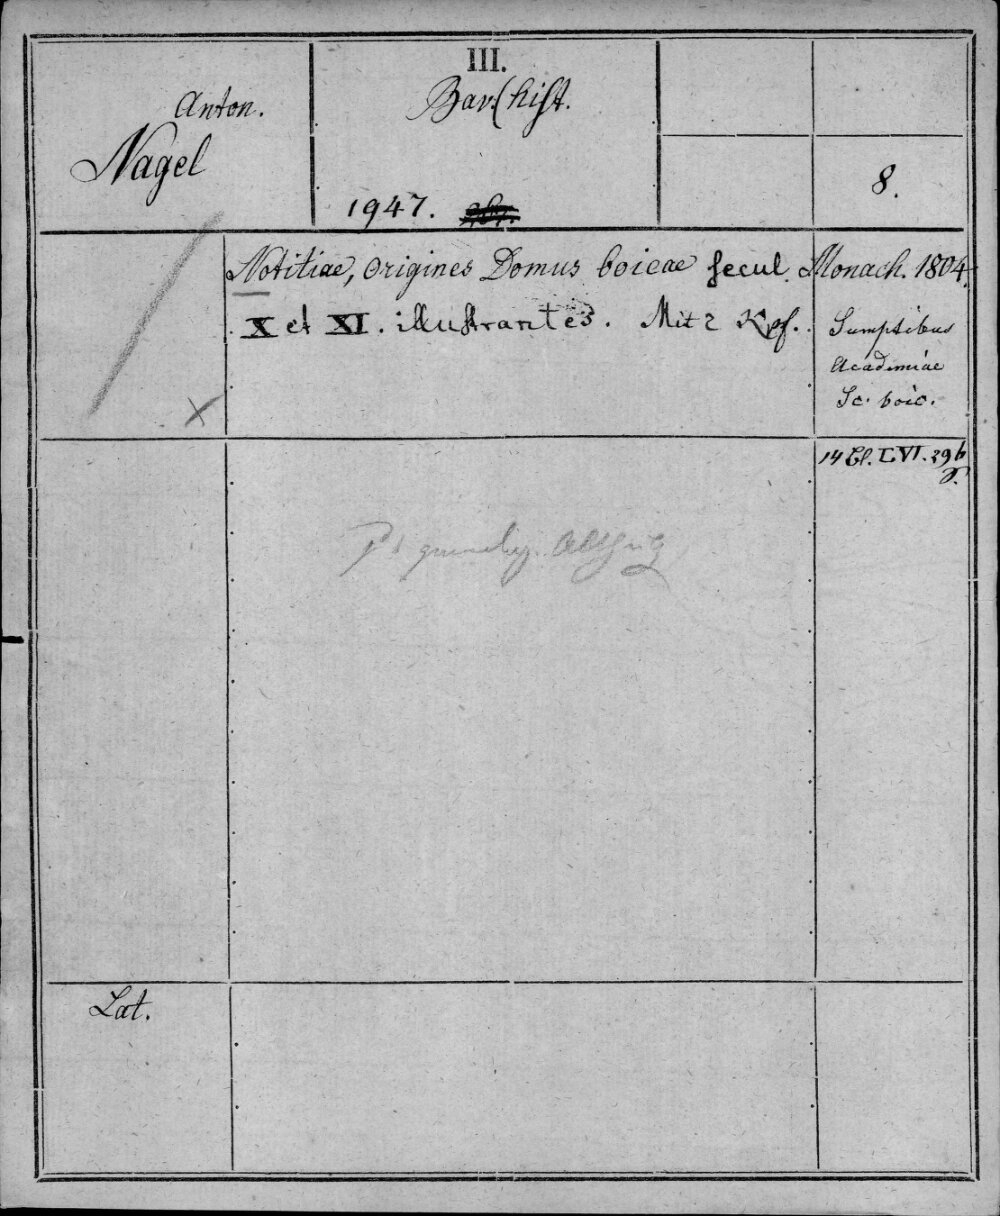 III.
Bav. hist.
Anton.
Nagel
8.
1947.
Notitiae, origines Domus boicae secul.
X et XI. illustrantes. Mit 2 Kpf.
Monach. 1804.
Sumptibus
Academiae
Sc. boic.
14 Bl. LVI. 296
S.
Lat.